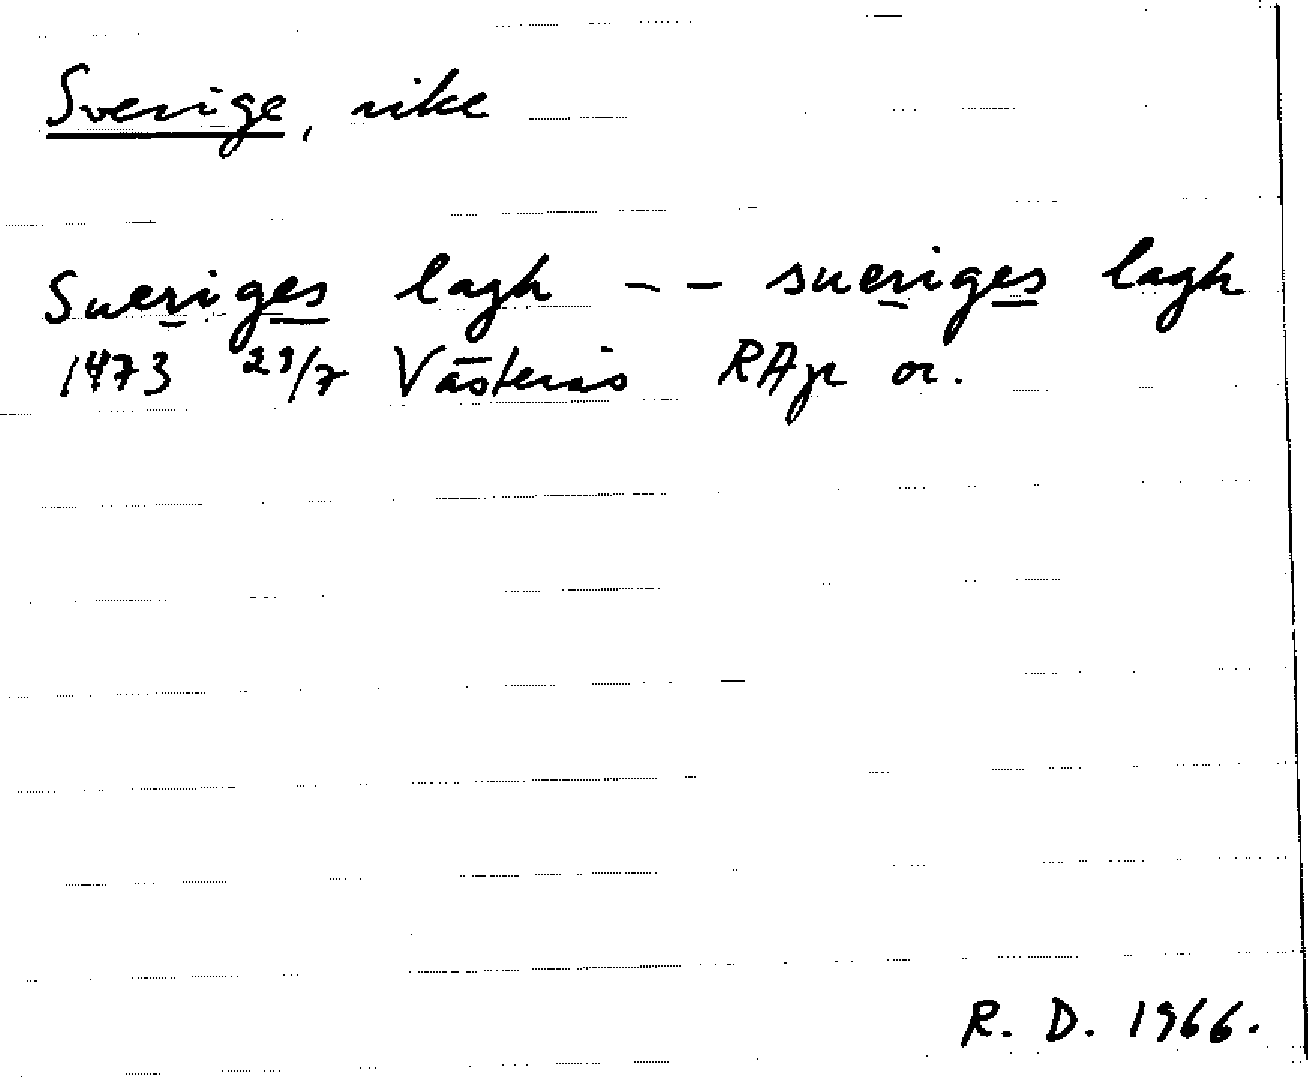 Sverige, rike
Sueriges lagh - - sueriges lagh
1473 29/7 Västerås RAp or.
R. D. 1966.